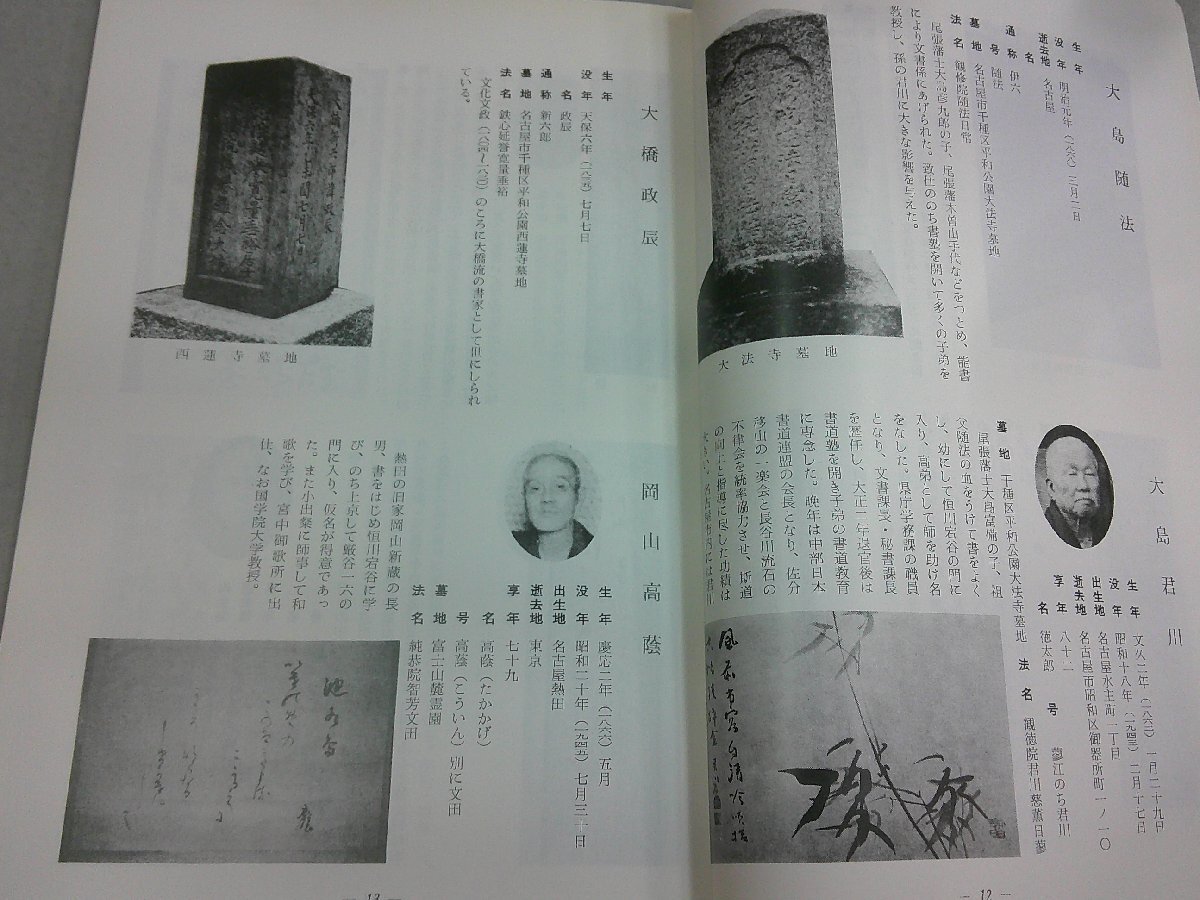 大島随法
生年
没年 明治元年(一八六八)三月二日
逝去地 名古屋
名
通称 伊六
号 随法
墓地 名古屋市千種区平和公園大法寺墓地
法名 観修院随法日常
尾張藩士大高彦九郎の子、尾張藩木曽山手代などをつとめ、能書
により文書係にあげられた。致仕ののち書塾を開いて多くの子弟を
教授し、孫の君川に大きな影響を与えた。
大法寺墓地
大島君川
生年 文久二年(一八六二)一月二十九日
没年 昭和十八年(一九四三)二月十七日
出生地 名古屋水主町一丁目
逝去地 名古屋市昭和区御器所町一ノ一〇
享年 八十二
名 徳太郎 号 蓼江のち君川
墓地 千種区平和公園大法寺墓地 法名 観徳院君川慈薫日蓼
尾張藩士大島富楠の子、祖
父随法の血をうけて書をよく
し、幼にして恒川宕谷の門に
入り、高弟として師を助け名
をなした。県庁学務課の職員
となり、文書課長・秘書課長
を歴任し、大正一年退官後は
書道塾を開き子弟の書道教育
に専念した。晩年は中部日本
書道連盟の会長となり、佐分
移山の一楽会と長谷川流石の
不律会を統率協力させ、斯道
の向上指導に尽した功績は
大きい。名古屋市内には君川
— 12 —
大橋政辰
生年
没年 天保六年(一八三五)七月七日
名 政辰
通称 新六郎
墓地 名古屋市千種区平和公園西蓮寺墓地
法名 鉄心延誉寛量垂裕
文化文政(一八〇四〜一八三〇)のころに大橋流の書家として世にしられ
ている。
西蓮寺墓地
岡山高蔭
生年 慶応二年(一八六六)五月
没年 昭和二十年(一九四五)七月三十日
出生地 名古屋熱田
逝去地 東京
享年 七十九
名 高蔭(たかかげ)
号 高蔭(こういん)別に文田
墓地 富士山麓霊園
法名 純恭院智芳文田
熱田の旧家岡山新蔵の長
男、書をはじめ恒川宕谷に学
び、のち上京して厳谷一六の
門に入り、仮名が得意であっ
た。また小出粲に師事して和
歌を学び、宮中御歌所に出
仕、なお国学院大学教授。
— 13 —